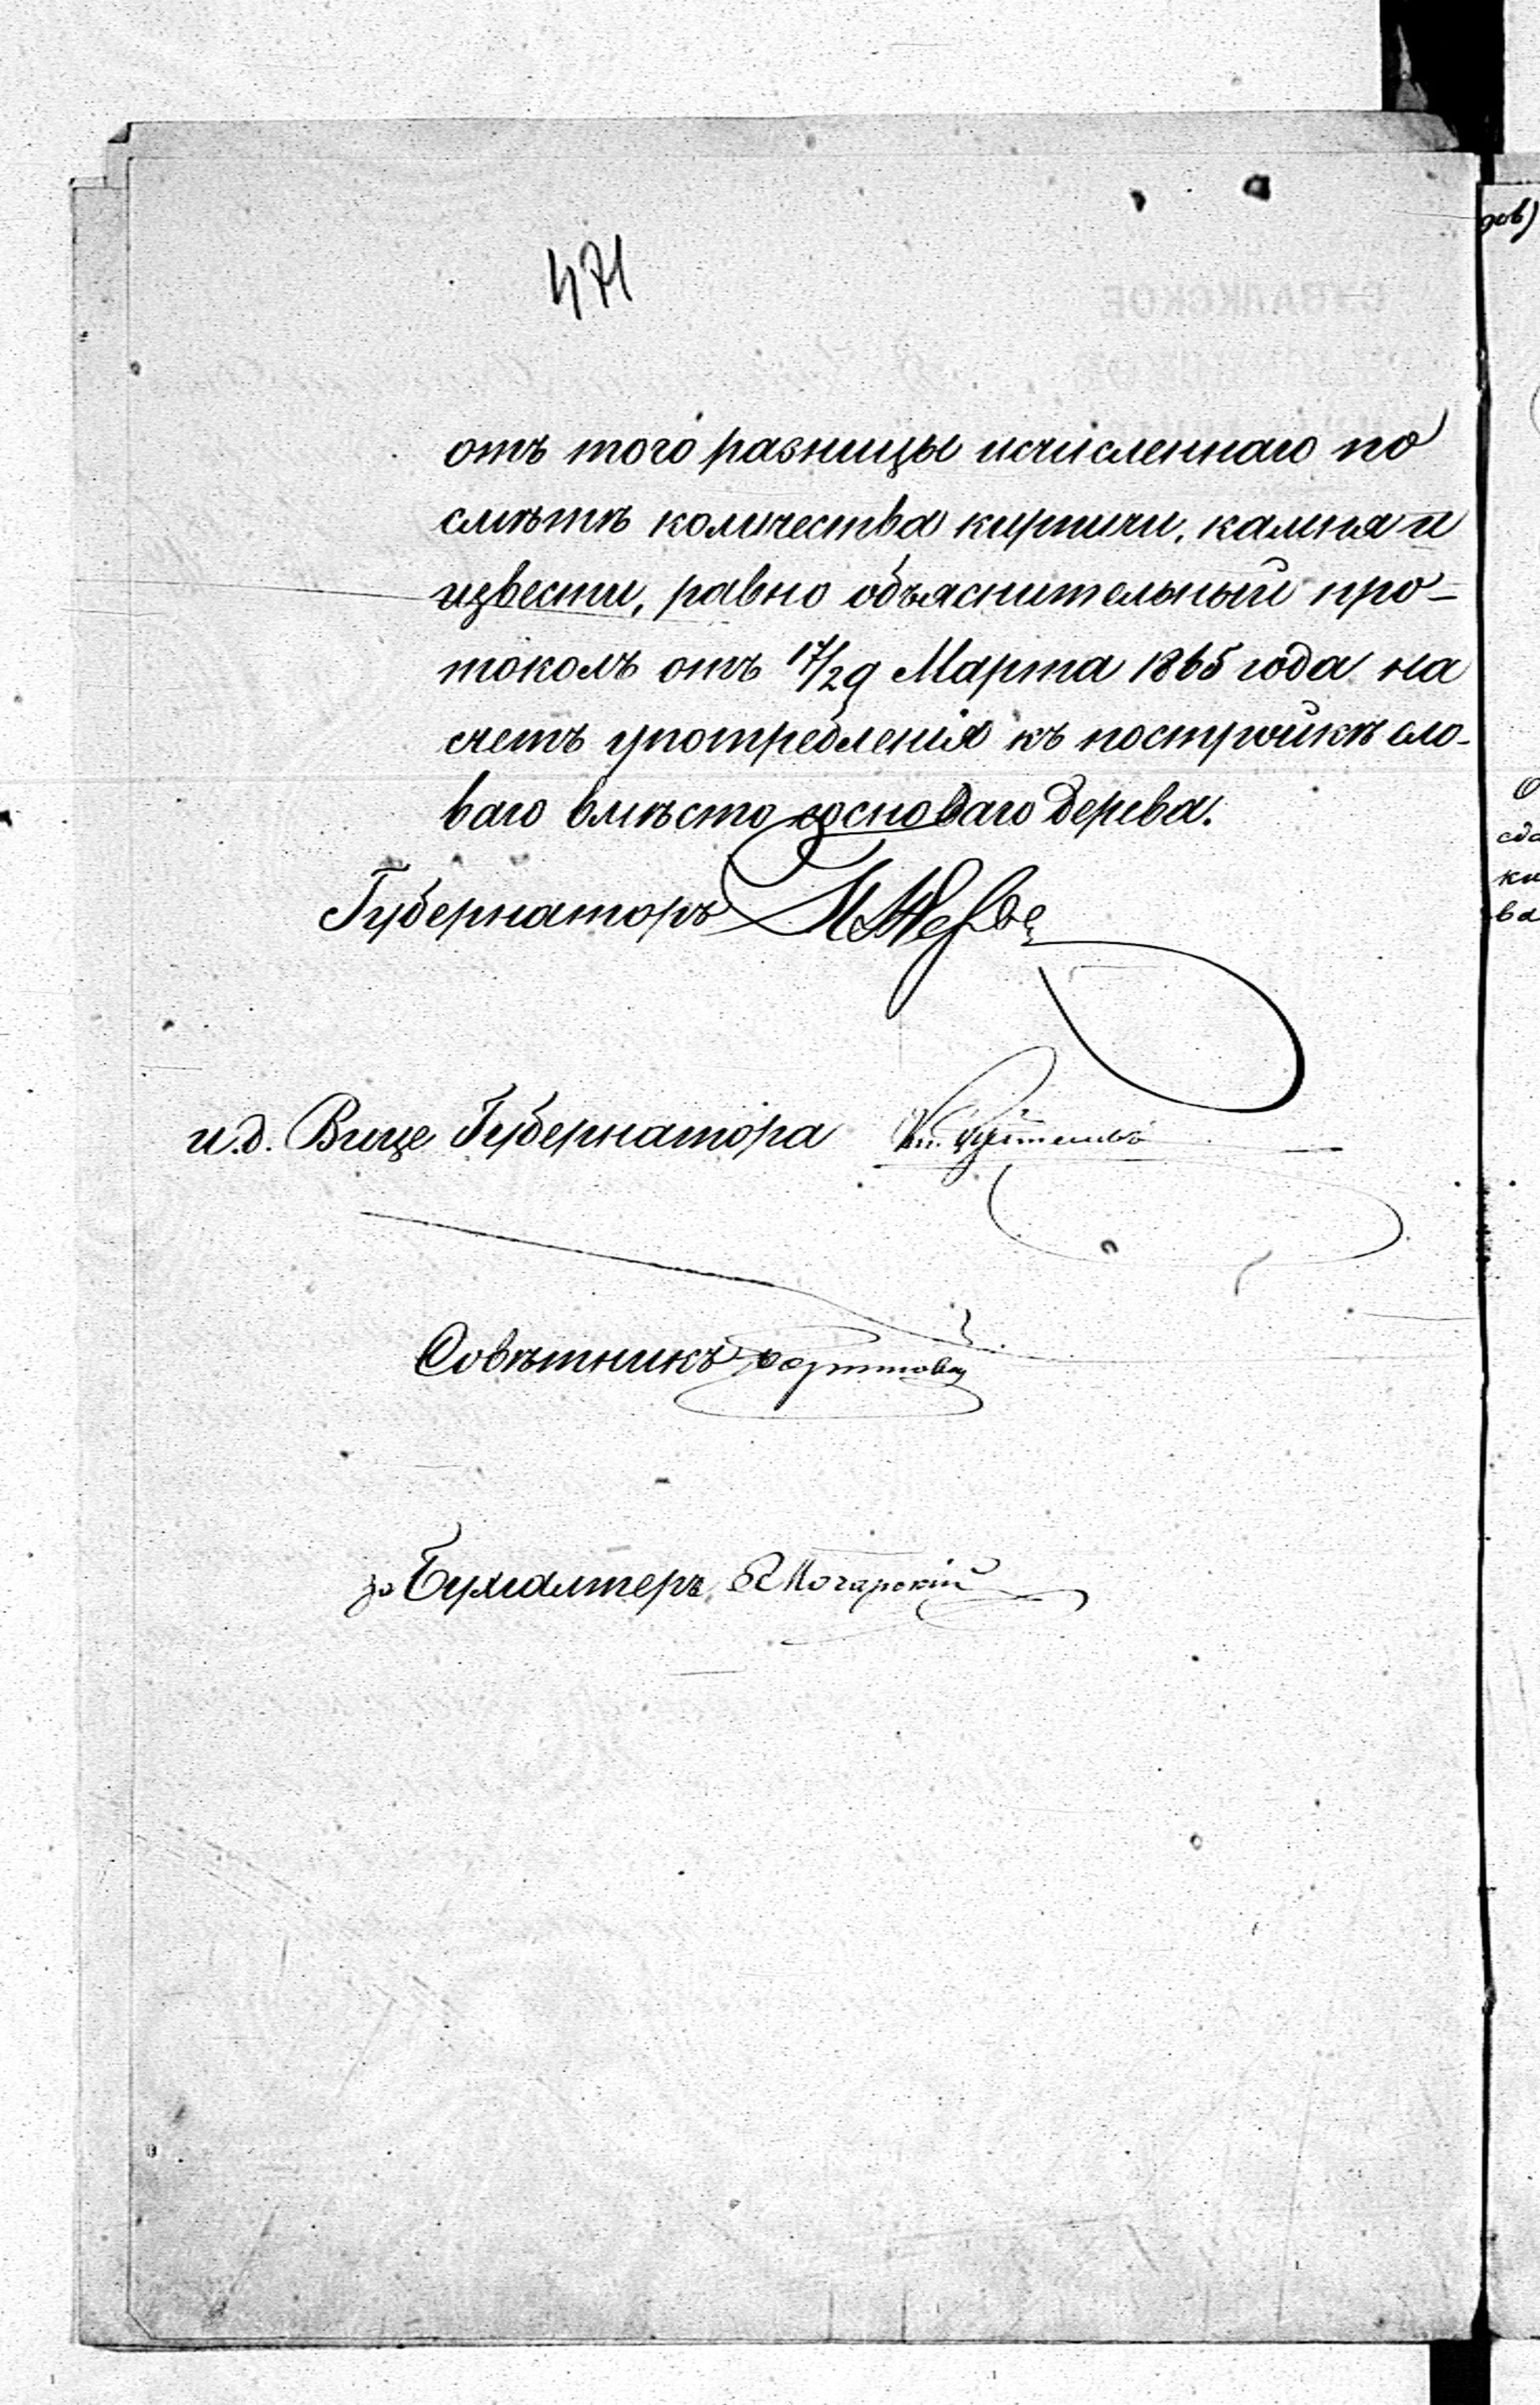 471
отъ того разницы исчисленнаго по
смѣтѣ количества кирпичи, камня и
извести, равно объяснительный про-
токолъ отъ 17/29 Марта 1865 года на
счетъ употребленія къ постройкѣ ело-
ваго вмѣсто сосноваго дерева.
Губернаторъ
и.д. Вице Губернатора
Совѣтникъ
за Бухгалтеръ Мочарскій